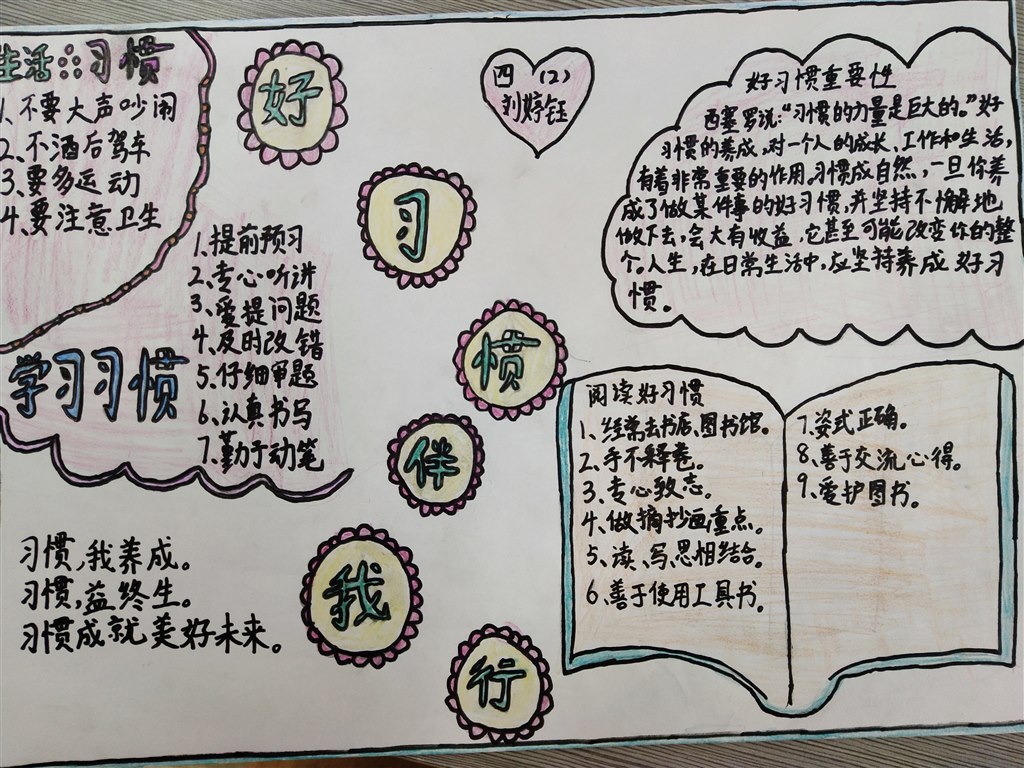 生活习惯
1、不要大声吵闹
2、不酒后驾车
3、要多运动
4、要注意卫生
好
习
惯
伴
我
行
四(2)
刘婷钰
好习惯重要性
西塞罗说:“习惯的力量是巨大的。”好
习惯的养成,对一个人的成长、工作和生活,
有着非常重要的作用。习惯成自然,一旦你养
成了做某件事的好习惯,并坚持不懈地
做下去,会大有收益,它甚至可能改变你的整
个人生,在日常生活中,应坚持养成好习
惯。
学习习惯
1、提前预习
2、专心听讲
3、爱提问题
4、及时改错
5、仔细审题
6、认真书写
7、勤于动笔
阅读好习惯
1、经常去书店、图书馆。
2、手不释卷。
3、专心致志。
4、做摘抄画重点。
5、读、写、思相结合。
6、善于使用工具书。
7、姿式正确。
8、善于交流心得。
9、爱护图书。
习惯,我养成。
习惯,益终生。
习惯成就美好未来。